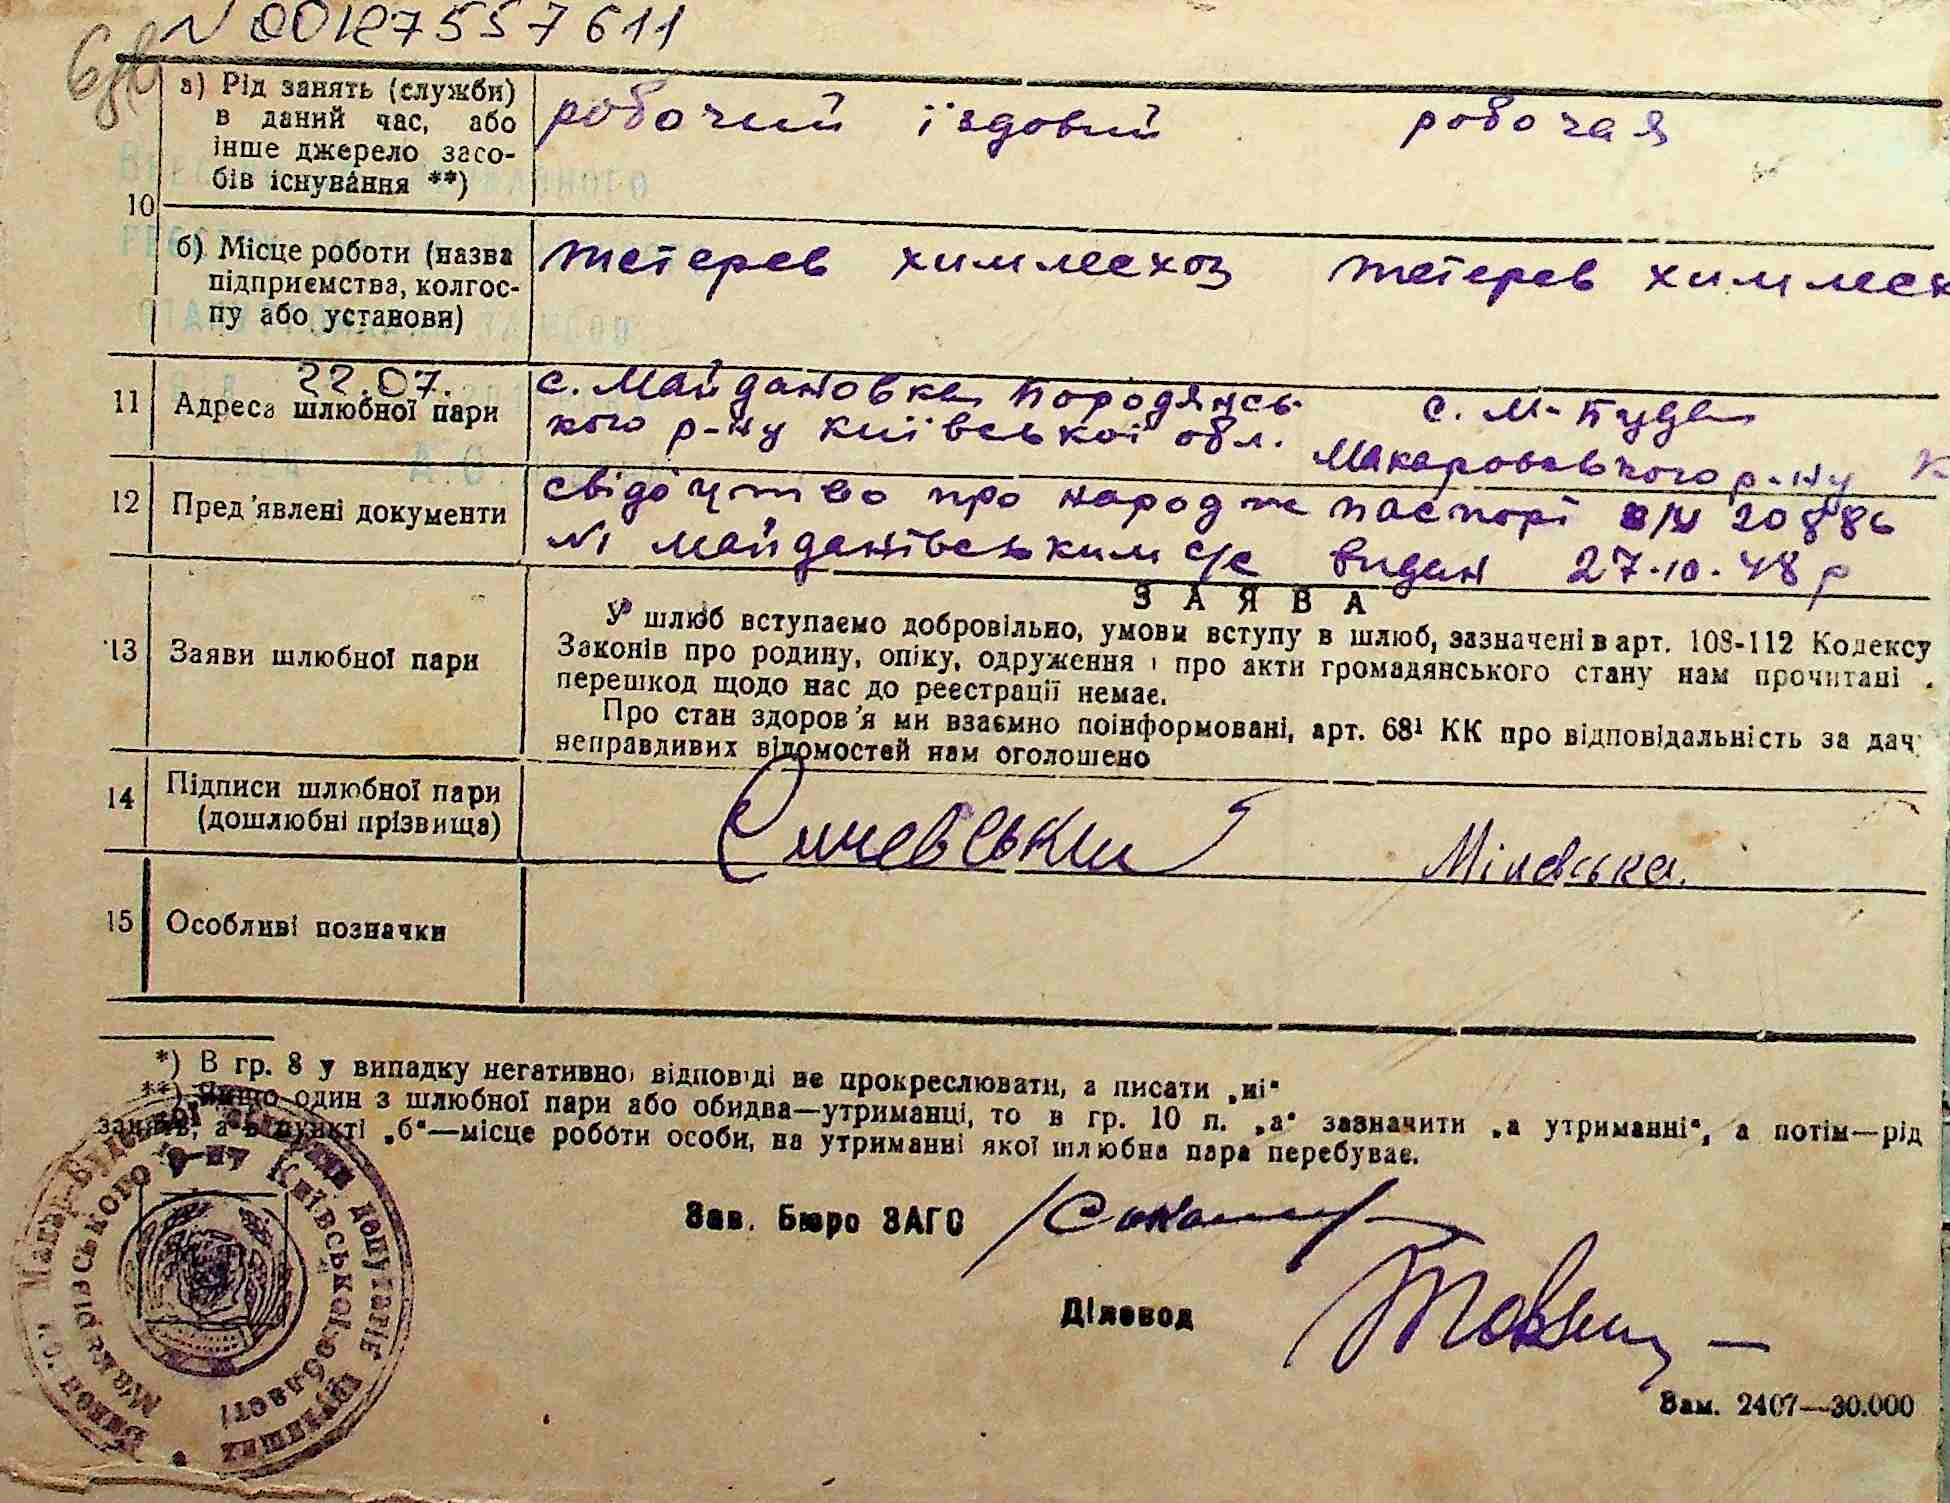 N 00127557611
а) Рід занять (служби)
в даний час, або
інше джерело засо-
бів існування **)
робочий їздовий
робочая
10
б) Місце роботи (назва
підприємства, колгос-
пу або установи)
тетерев химлесхоз
тетерев химлесх
22.07.
11
Адреса шлюбної пари
с. Майдановка Бородянсь-
кого р-ну київської обл.
с. М-Буда
Макаровського р-ну К
12
Пред'явлені документи
свідоцтво про народж
№1 майданівським с/с
паспорт 20886
видан 27.10.48 р
13
Заяви шлюбної пари
ЗАЯВА
У шлюб вступаємо добровільно, умови вступу в шлюб, зазначені в арт. 108-112 Кодексу
Законів про родину, опіку, одруження і про акти громадянського стану нам прочитані
перешкод щодо нас до реєстрації немає.
Про стан здоров'я ми взаємно поінформовані, арт. 68¹ КК про відповідальність за дач
неправдивих відомостей нам оголошено
14
Підписи шлюбної пари
(дошлюбні прізвища)
Мілевська.
15
Особливі позначки
*) В гр. 8 у випадку негативної відповіді не прокреслювати, а писати „ні“
**) Якщо один з шлюбної пари або обидва—утриманці, то в гр. 10 п. „а“ зазначити „а утриманні“, а потім—рід
занять, а в пункті „б“—місце роботи особи, на утриманні якої шлюбна пара перебуває.
Зав. Бюро ЗАГС
Діловод
Зам. 2407—30.000
Макарівського р-ну Київської області
депутатів трудящих